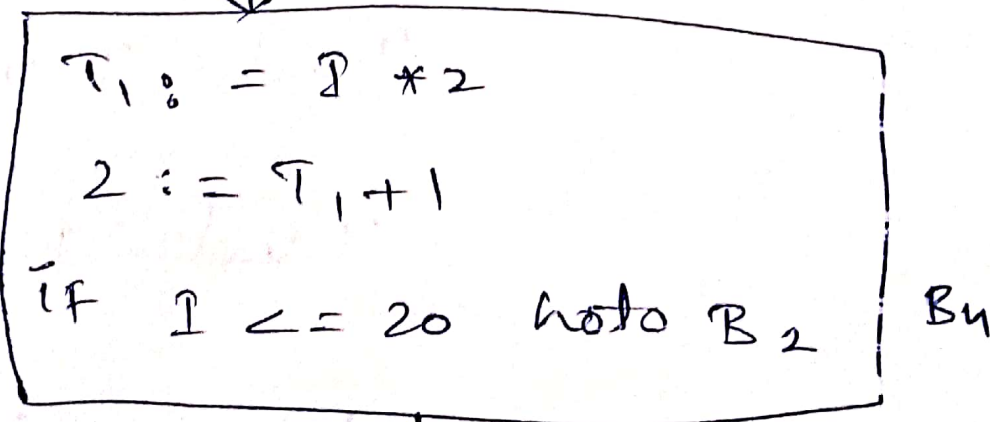 T1 := I * 2
2 := T1 + 1
if I <= 20 goto B2
B4